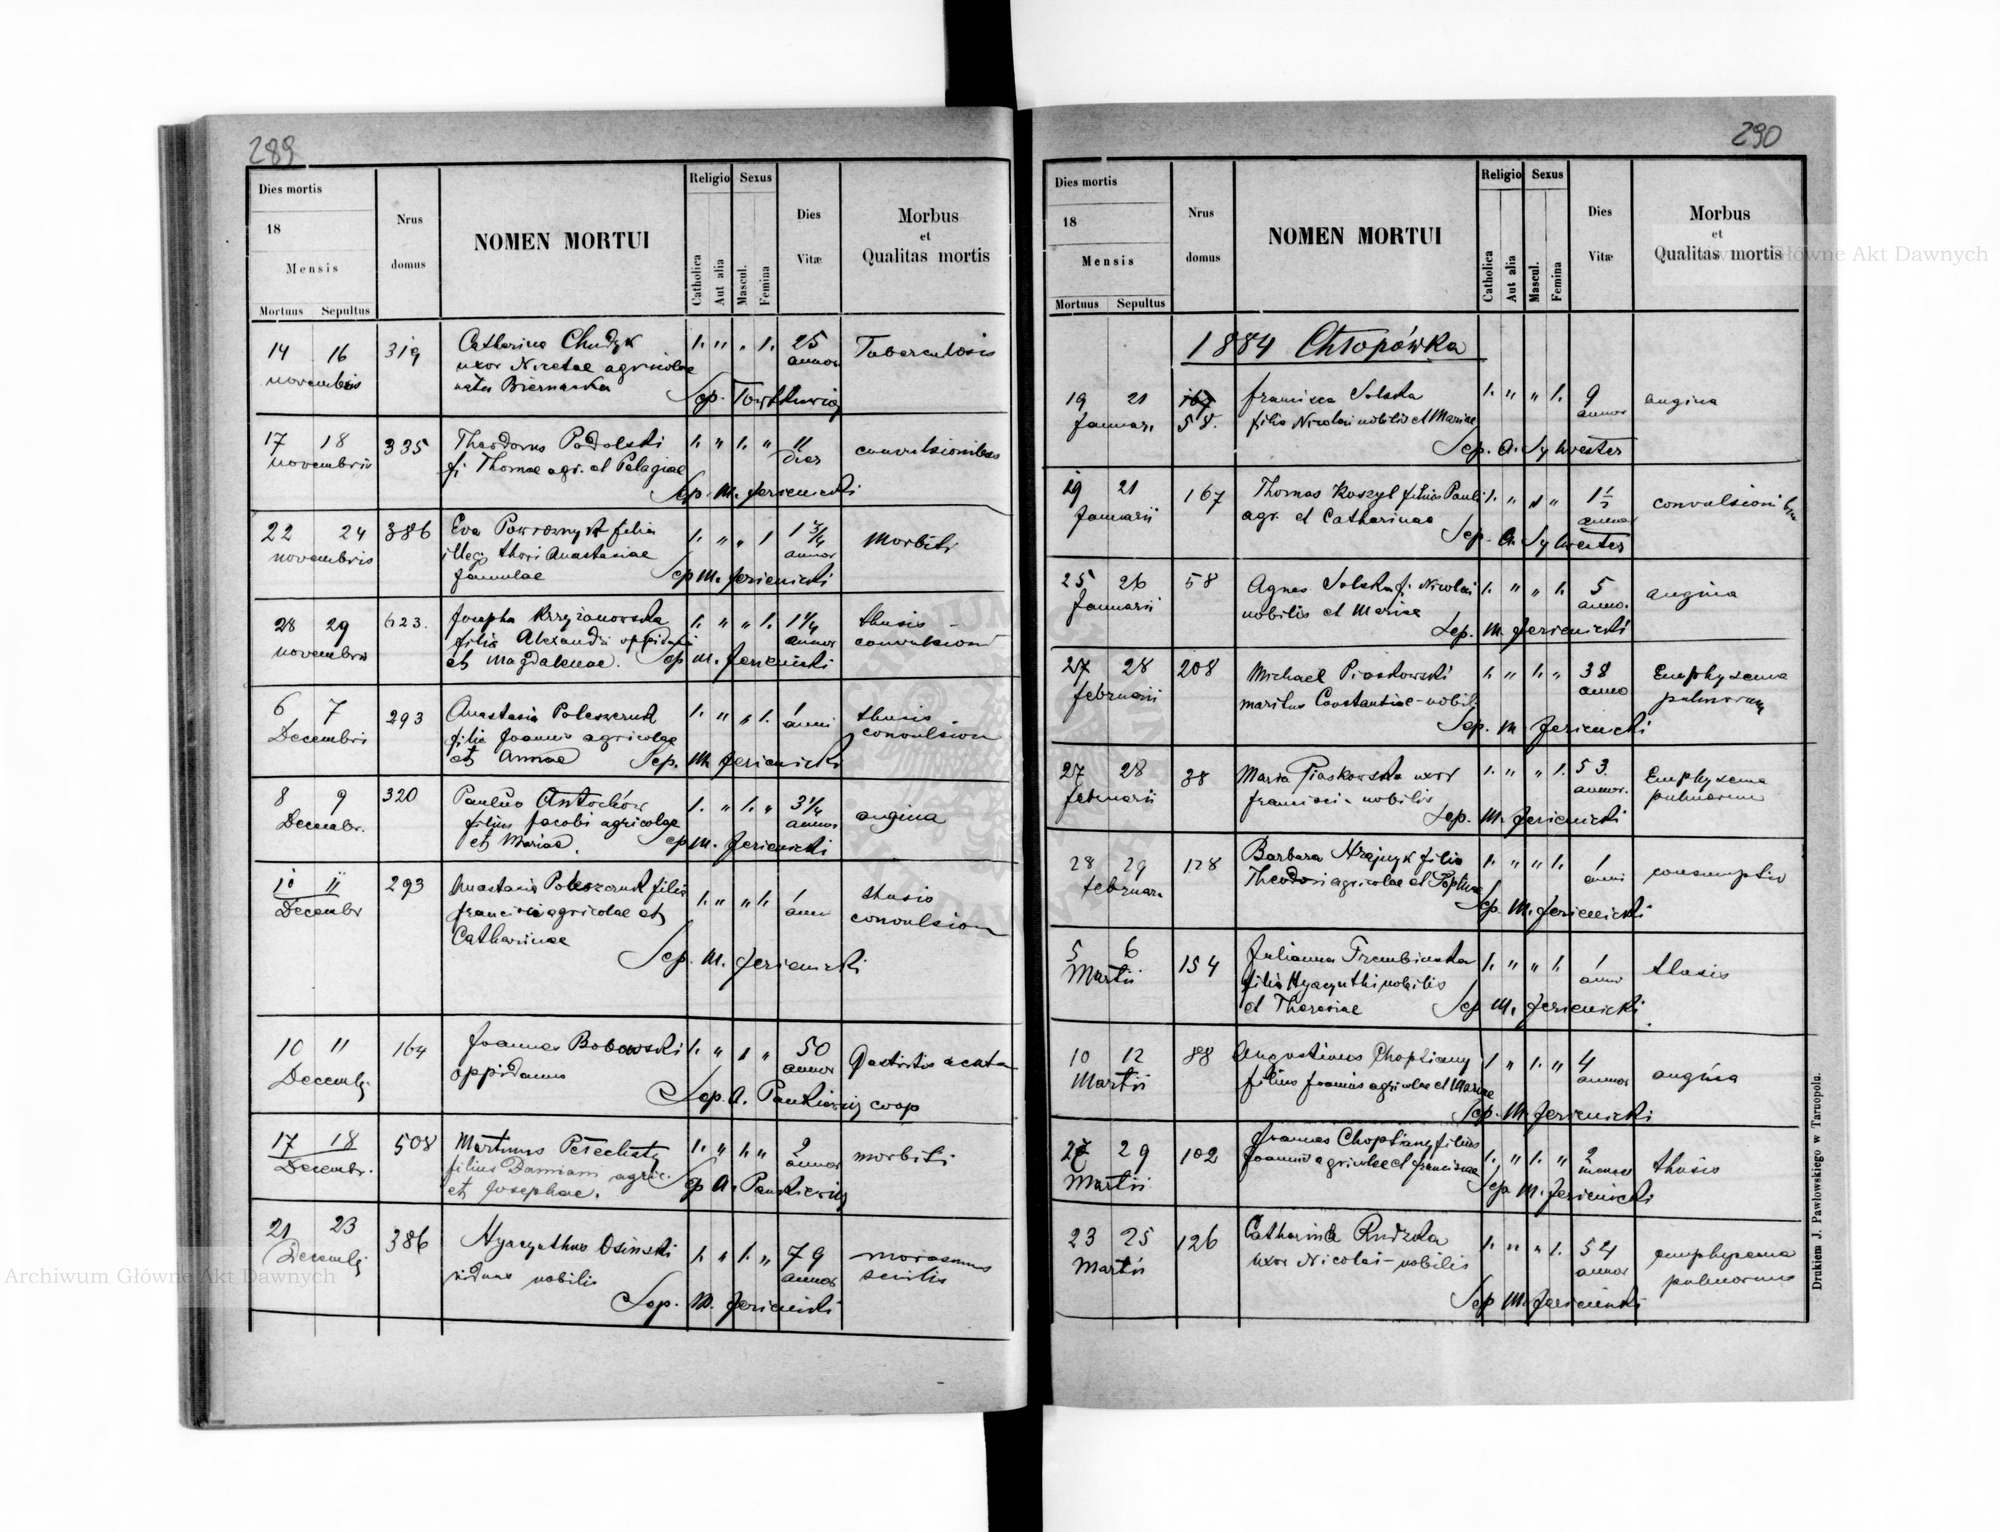 289
Dies mortis
18
Mensis
Mortuus Sepultus
Nrus domus
NOMEN MORTUI
Religio
Catholica
Aut alia
Sexus
Mascul.
Femina
Dies Vitæ
Morbus
et
Qualitas mortis
14 16 319 Catharina Chudyk 1. " " 1. 25 Tuberculosis
novembris uxor Nicetae agricolae annor
nata Biernacka Sep.
17 18 335 Theodorus Podolski 1. " 1. " 11 convulsionibus
novembris f. Thomae agr. et Pelagiae dies
Sep. M. Jezienicki
22 24 386 Eva filia 1. " " 1 1 3/4 Morbili
novembris illeg. thori Anastasiae annor
famulae Sep M. Jezienicki
28 29 623. Josepha Krzyżanowska 1. " " 1. 1 1/4 thusis -
novembris filia Alexandri oppidani annor convulsion
et Magdalenae. Sep M. Jezienicki
6 7 293 Anastasia Poleszczuk 1. " " 1. 1 thusis
Decembris filia Joannis agricolae anni convulsion
et Annae Sep. M. Jezienicki
8 9 320 Paulus Antochów 1. " 1. " 3 1/4 angina
Decembr. filius Jacobi agricolae annor
et Mariae. Sep M. Jezienicki
10 11 293 Anastasia Poleszczuk filia 1. " " 1. 1 thusis
Decembr francisci agricolae et anni convulsion
Catharinae
Sep. M. Jezienicki
10 11 164 Joannes Bobowski 1. " 1 " 50 Gastritis acuta
Decemb. oppidanus annor
Sep. A. Pankiewicz coop
17 18 508 Martinus Petechaty 1. " 1. " 2 morbili
Decembr. filius Damiani agric. annor
et Josephae. Sep A. Pankiewicz
21 23 386 Hyacynthus Osinski 1. " 1. " 79 morasmus
Decemb viduus nobilis annor senilis
Sep. M. Jezienicki
290
Dies mortis
18
Mensis
Mortuus Sepultus
Nrus domus
NOMEN MORTUI
Religio
Catholica
Aut alia
Sexus
Mascul.
Femina
Dies Vitæ
Morbus
et
Qualitas mortis
1884 Chłopówka
19 21 167 francisca Solska 1. " " 1. 9 angina
Januar. 58. filia Nicolai nobilis et Mariae annor
Sep. A. Sylwester
19 21 167 Thomas Koszyl filius Pauli 1. " 1 " 1 1/2 convulsionibus
Januarii agr. et Catharinae annor
Sep. A. Sylwester
25 26 58 Agnes Solska f. Nicolai 1. " " 1. 5 angina
Januarii nobilis et Mariae anno.
Sep. M. Jezienicki
27 28 208 Michael Piaskowski 1. " 1. " 38 Emphysema
februarii maritus Constantiae - nobil. anno pulmorum
Sep. M Jezienicki
27 28 38 Maria Piaskowska uxor 1. " " 1. 53. Emphysema
februarii francisci - nobilis annor. pulmorum
Sep. M. Jezienicki
28 29 128 Barbara filia 1. " " 1. 1 consumptio
februar. Theodori agricolae et anni
Sep. M. Jezienicki
5 6 154 Julianna Trembinska 1. " " 1. 1 thusis
Martii filia Hyacynthi nobilis anni
et Theresiae Sep M. Jezienicki
10 12 88 Augustinus Choptiany 1 " 1. " 4 angina
Martii filius Joannis agricolae et Mariae annor
Sep. M. Jezienicki
27 29 102 Joannes Choptiany filius 1. " 1. " 2 thusis
Martii Joannis agricolae et franciscae menses
Sep. M. Jezienicki
23 25 126 Catharina Rudzka 1. " " 1. 54 emphysema
Martii uxor Nicolai - nobilis annor pulmorum
Sep M. Jezienicki
Drukiem J. Pawłowskiego w Tarnopolu.
Archiwum Główne Akt Dawnych
Główne Akt Dawnych